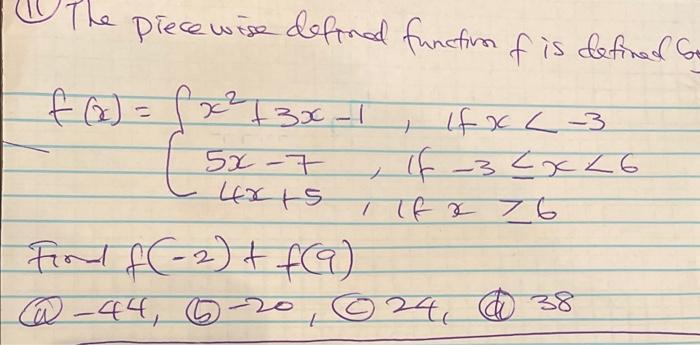 (11) The piecewise defined function f is defined by
f(x) = { x² + 3x - 1 , if x < -3
5x - 7 , if -3 ≤ x < 6
4x + 5 , if x ≥ 6
Find f(-2) + f(9)
(a) -44, (b) -20, (c) 24, (d) 38